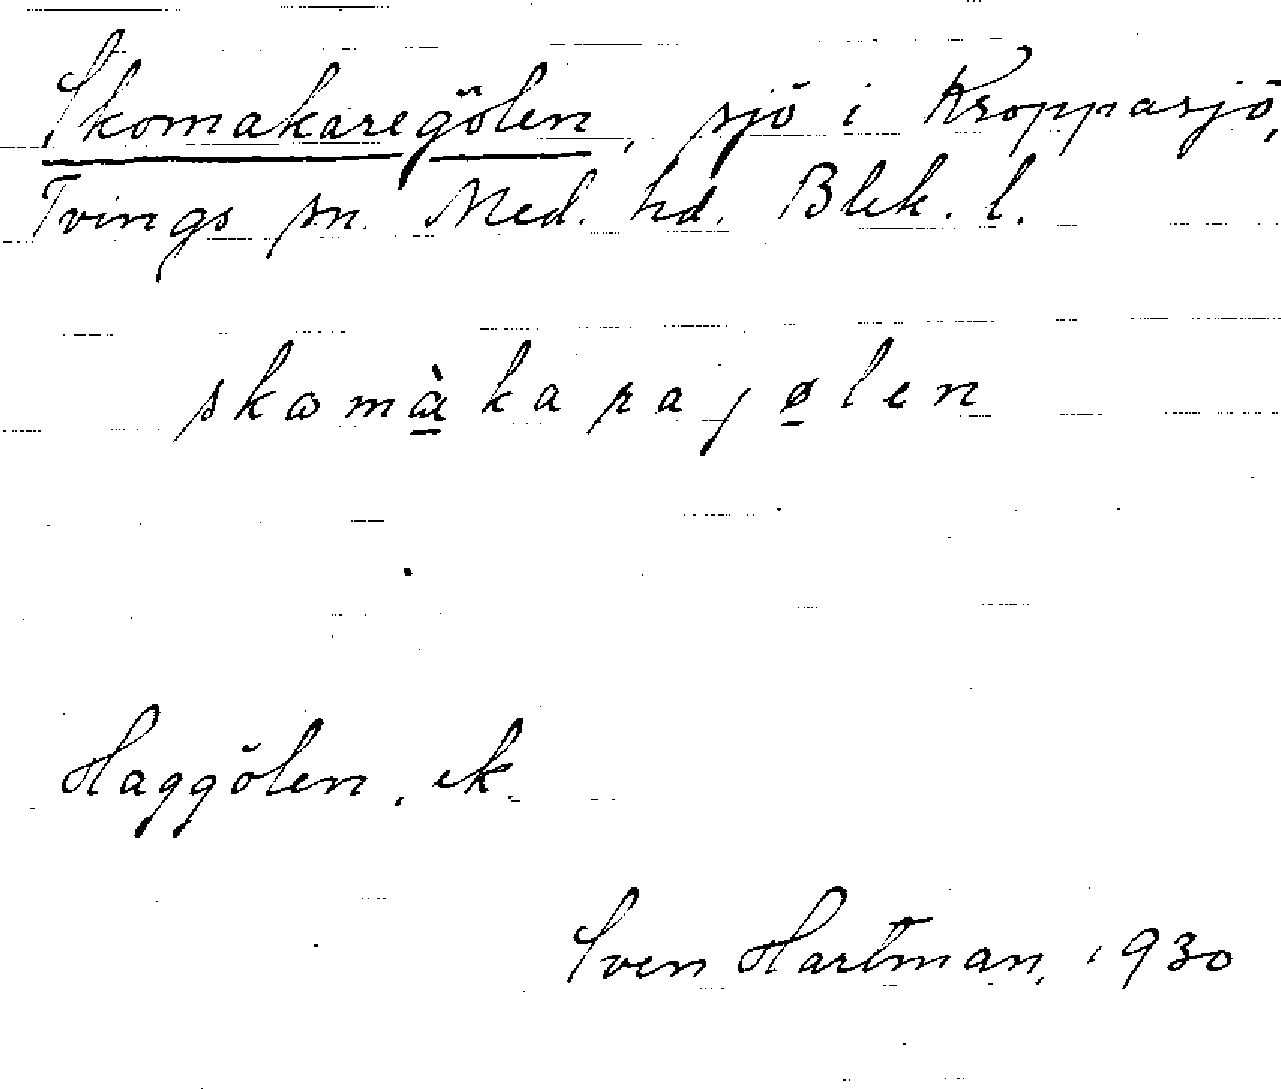 Skomakaregölen, sjö i Kroppasjö,
Tvings sn. Med. hd. Blek. l.
skomàkarajølen
Haggölen, ek.
Sven Hartman, 1930